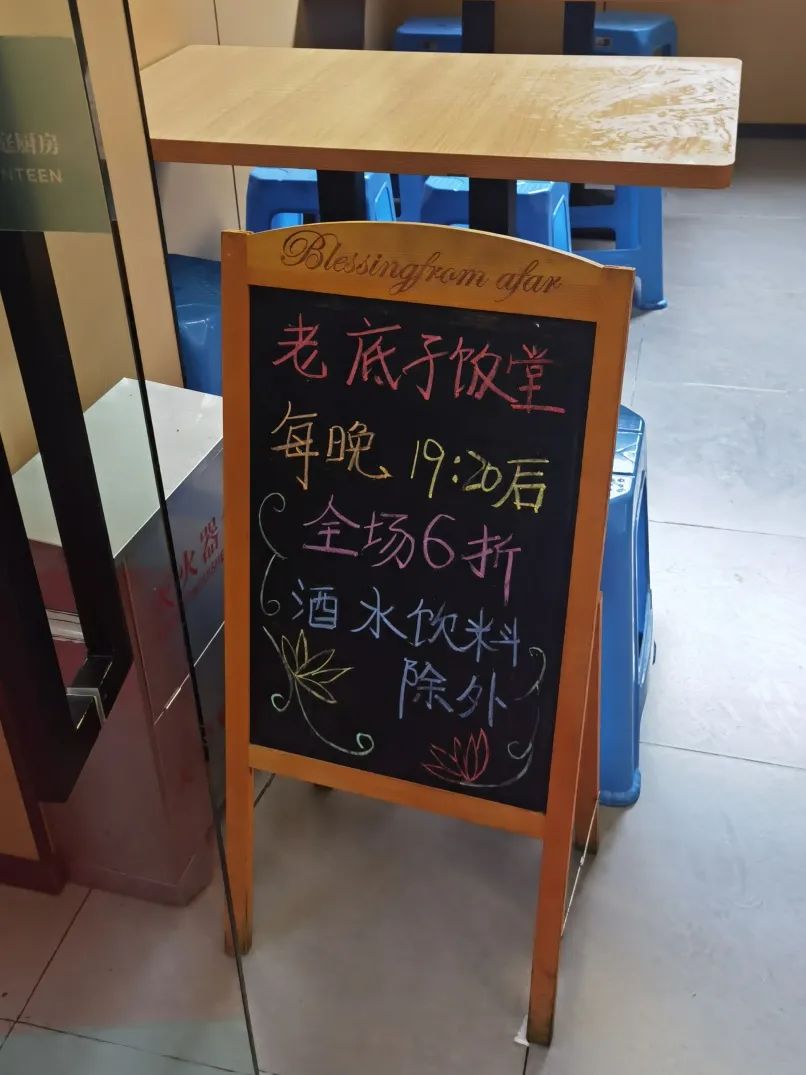 庭厨房
NTEEN
Blessingfrom afar
老底子饭堂
每晚 19:20后
全场6折
酒水饮料
除外
火器